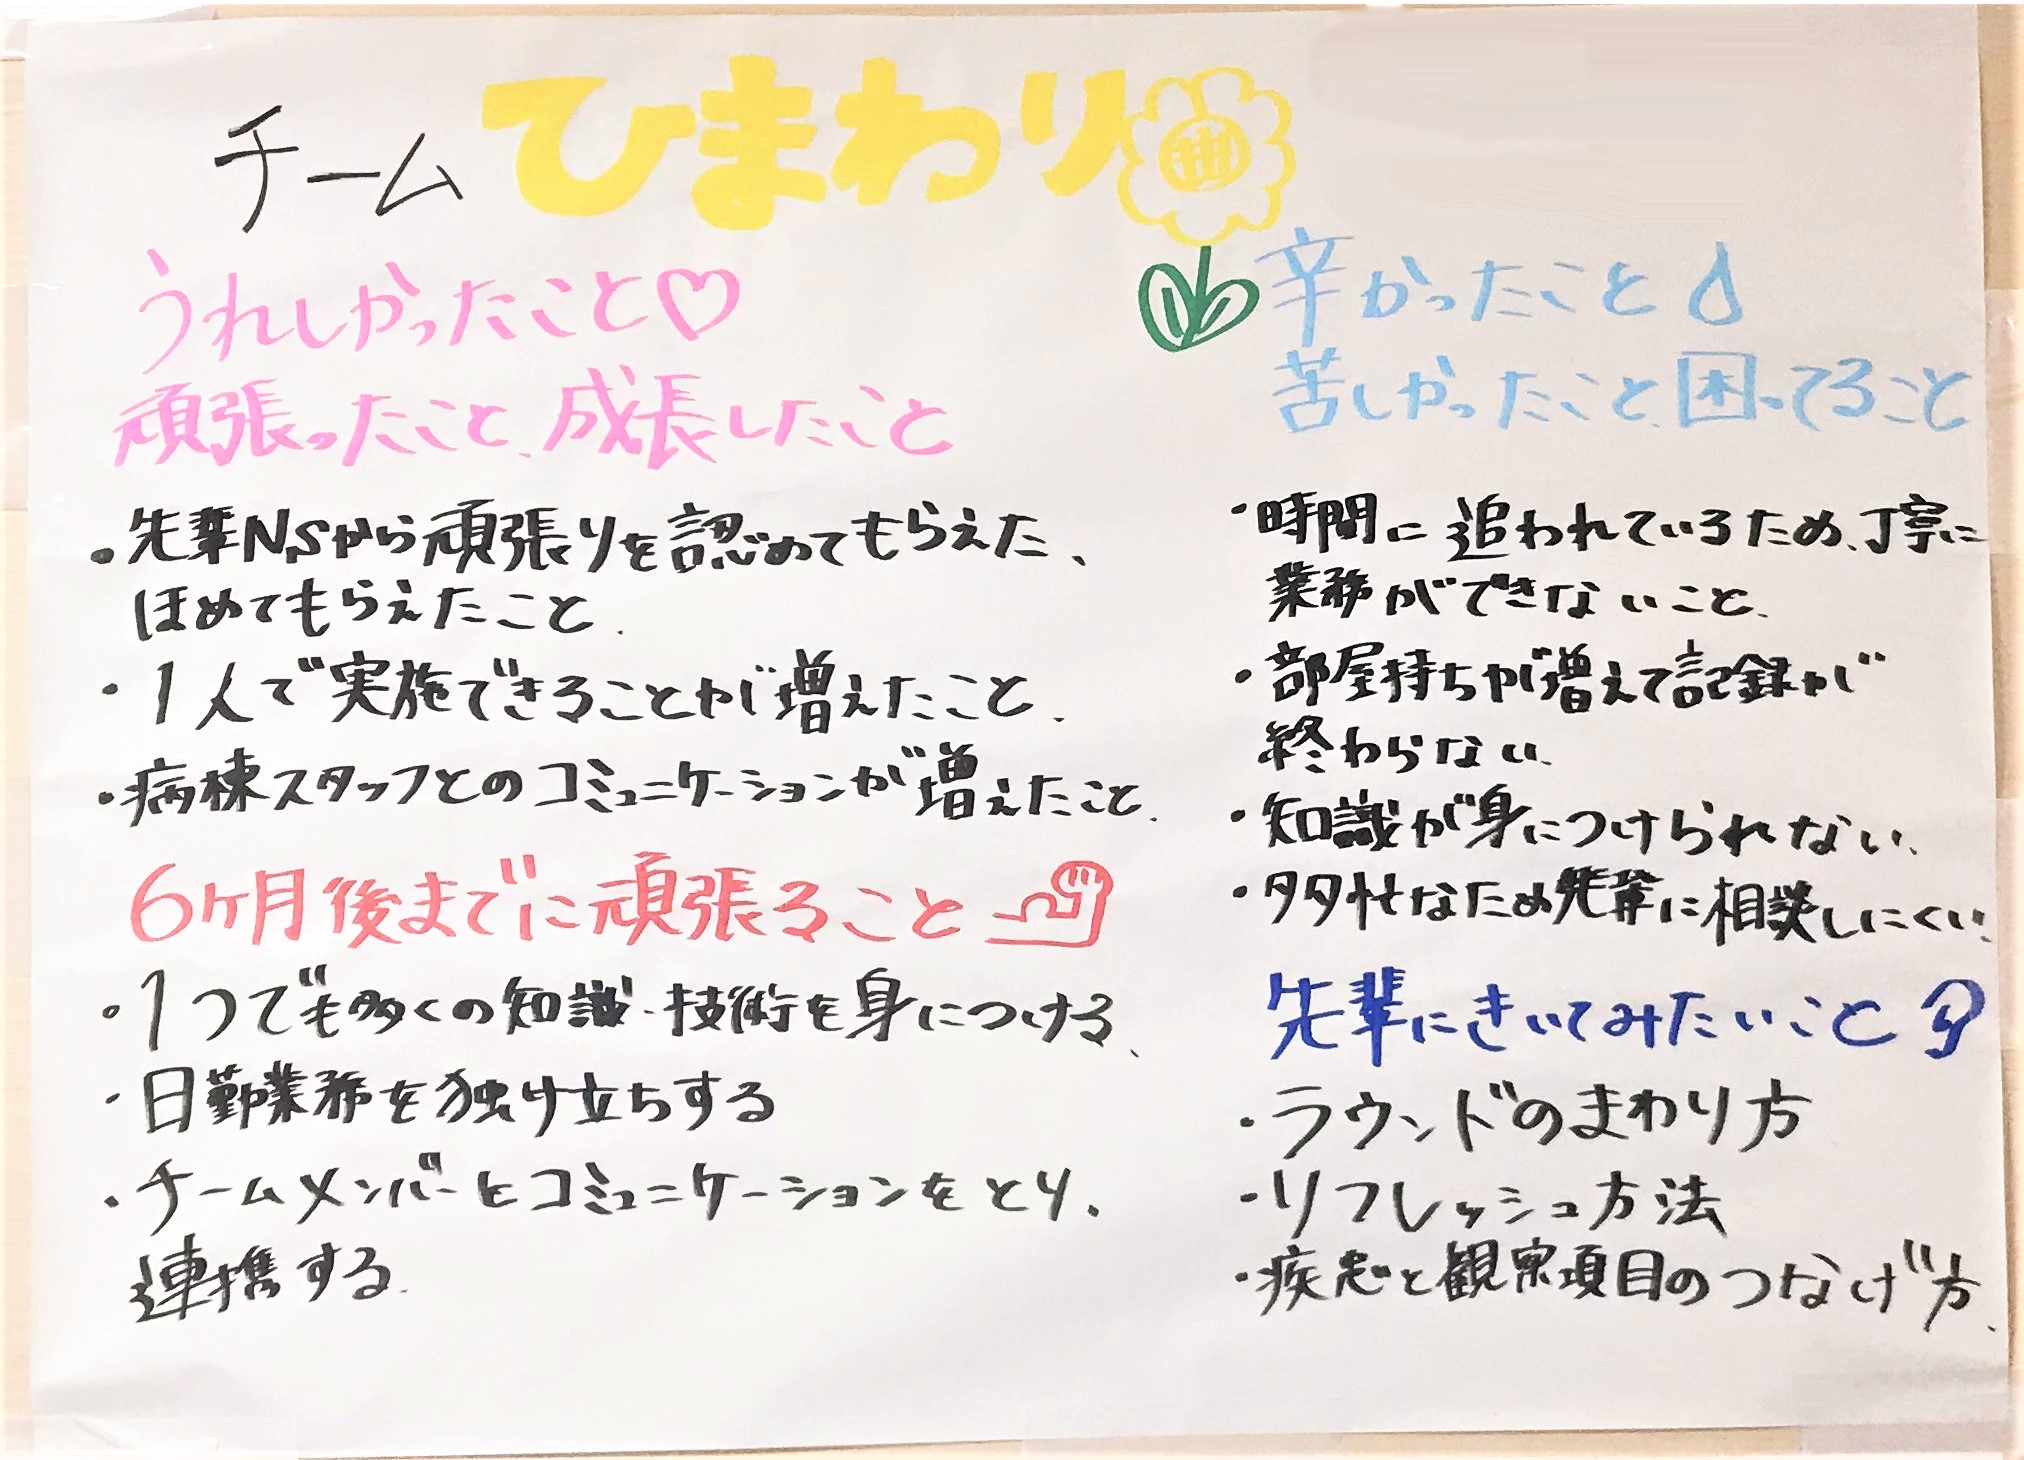 チームひまわり
うれしかったこと♡
頑張ったこと、成長したこと
・先輩NSから頑張りを認めてもらえた、
ほめてもらえたこと.
・1人で実施できることが増えたこと.
・病棟スタッフとのコミュニケーションが増えたこと.
6ヶ月後までに頑張ること
・1つでも多くの知識・技術を身につける、
・日勤業務を独り立ちする
・チームメンバーとコミュニケーションをとり、
連携する.
辛かったこと
苦しかったこと、困ってること
・時間に追われているため、丁寧に
業務ができないこと、
・部屋持ちが増えて記録が
終わらない、
・知識が身につけられない、
・多忙なため先輩に相談しにくい、
先輩にきいてみたいこと
・ラウンドのまわり方
・リフレッシュ方法
・疾患と観察項目のつなげ方、